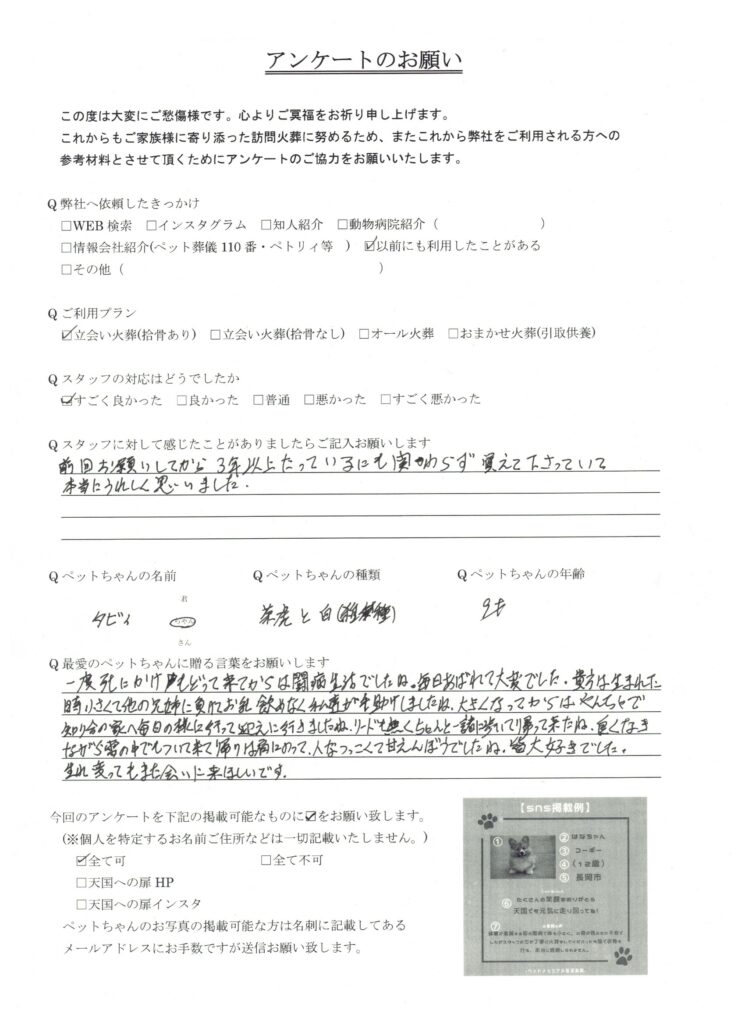 アンケートのお願い
この度は大変にご愁傷様です。心よりご冥福をお祈り申し上げます。
これからもご家族様に寄り添った訪問火葬に努めるため、またこれから弊社をご利用される方への
参考材料とさせて頂くためにアンケートのご協力をお願いいたします。
Q 弊社へ依頼したきっかけ
□WEB 検索 □インスタグラム □知人紹介 □動物病院紹介（ ）
□情報会社紹介(ペット葬儀 110 番・ペトリィ等 ) ☑以前にも利用したことがある
□その他（ ）
Q ご利用プラン
☑立会い火葬(拾骨あり) □立会い火葬(拾骨なし) □オール火葬 □おまかせ火葬(引取供養)
Q スタッフの対応はどうでしたか
☑すごく良かった □良かった □普通 □悪かった □すごく悪かった
Q スタッフに対して感じたことがありましたらご記入お願いします
前回お願いしてから3年以上たっているにも関わらず覚えて下さっていて
本当にうれしく思いました.
Q ペットちゃんの名前 Q ペットちゃんの種類 Q ペットちゃんの年齢
君
タビィ ちゃん 茶虎と白
さん
Q 最愛のペットちゃんに贈る言葉をお願いします
一度死にかけ もどって来てからは闘病生活でしたね。毎日あばれて大変でした。貴方は生まれた
時小さくて他の兄姉に負けてお乳飲めなく私達が手助けしましたね.大きくなってからはやんちゃで
知り合の家へ毎日の様に行って迎えに行きましたね.リードも無くちゃんと一諸に歩いて帰って来たね.
ながら雪の中でもついて来て帰りは肩にのって.人なつっこくて甘えんぼうでしたね。皆大好きでした。
生れ変ってもまた会いに来ほしいです.
今回のアンケートを下記の掲載可能なものに☑をお願い致します。
(※個人を特定するお名前ご住所などは一切記載いたしません。)
☑全て可 □全て不可
□天国への扉 HP
□天国への扉インスタ
ペットちゃんのお写真の掲載可能な方は名刺に記載してある
メールアドレスにお手数ですが送信お願い致します。
【sns掲載例】
① ②はなちゃん
③コーギー
④(12歳)
⑤長岡市
⑥たくさんの笑顔をありがとう
天国でも元気に走り回ってね！
⑦